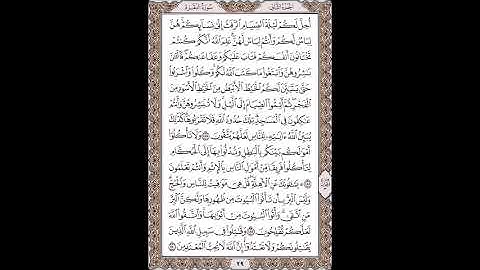 الجزء الثاني سورة البقرة
أُحِلَّ لَكُمْ لَيْلَةَ ٱلصِّيَامِ ٱلرَّفَثُ إِلَىٰ نِسَآئِكُمْ هُنَّ
لِبَاسٌ لَّكُمْ وَأَنتُمْ لِبَاسٌ لَّهُنَّ عَلِمَ ٱللَّهُ أَنَّكُمْ كُنتُمْ
تَخْتَانُونَ أَنفُسَكُمْ فَتَابَ عَلَيْكُمْ وَعَفَا عَنكُمْ فَٱلْـَٰٔنَ
بَـٰشِرُوهُنَّ وَٱبْتَغُوا۟ مَا كَتَبَ ٱللَّهُ لَكُمْ وَكُلُوا۟ وَٱشْرَبُوا۟
حَتَّىٰ يَتَبَيَّنَ لَكُمُ ٱلْخَيْطُ ٱلْأَبْيَضُ مِنَ ٱلْخَيْطِ ٱلْأَسْوَدِ مِنَ
ٱلْفَجْرِ ثُمَّ أَتِمُّوا۟ ٱلصِّيَامَ إِلَى ٱلَّيْلِ وَلَا تُبَـٰشِرُوهُنَّ وَأَنتُمْ
عَـٰكِفُونَ فِى ٱلْمَسَـٰجِدِ تِلْكَ حُدُودُ ٱللَّهِ فَلَا تَقْرَبُوهَا كَذَٰلِكَ
يُبَيِّنُ ٱللَّهُ ءَايَـٰتِهِۦ لِلنَّاسِ لَعَلَّهُمْ يَتَّقُونَ ١٨٧ وَلَا تَأْكُلُوٓا۟
أَمْوَٰلَكُم بَيْنَكُم بِٱلْبَـٰطِلِ وَتُدْلُوا۟ بِهَآ إِلَى ٱلْحُكَّامِ
لِتَأْكُلُوا۟ فَرِيقًا مِّنْ أَمْوَٰلِ ٱلنَّاسِ بِٱلْإِثْمِ وَأَنتُمْ تَعْلَمُونَ
١٨٨ ۞ يَسْـَٔلُونَكَ عَنِ ٱلْأَهِلَّةِ قُلْ هِىَ مَوَٰقِيتُ لِلنَّاسِ وَٱلْحَجِّ
وَلَيْسَ ٱلْبِرُّ بِأَن تَأْتُوا۟ ٱلْبُيُوتَ مِن ظُهُورِهَا وَلَـٰكِنَّ ٱلْبِرَّ
مَنِ ٱتَّقَىٰ وَأْتُوا۟ ٱلْبُيُوتَ مِنْ أَبْوَٰبِهَا وَٱتَّقُوا۟ ٱللَّهَ
لَعَلَّكُمْ تُفْلِحُونَ ١٨٩ وَقَـٰتِلُوا۟ فِى سَبِيلِ ٱللَّهِ ٱلَّذِينَ
يُقَـٰتِلُونَكُمْ وَلَا تَعْتَدُوٓا۟ إِنَّ ٱللَّهَ لَا يُحِبُّ ٱلْمُعْتَدِينَ ١٩٠
٢٩